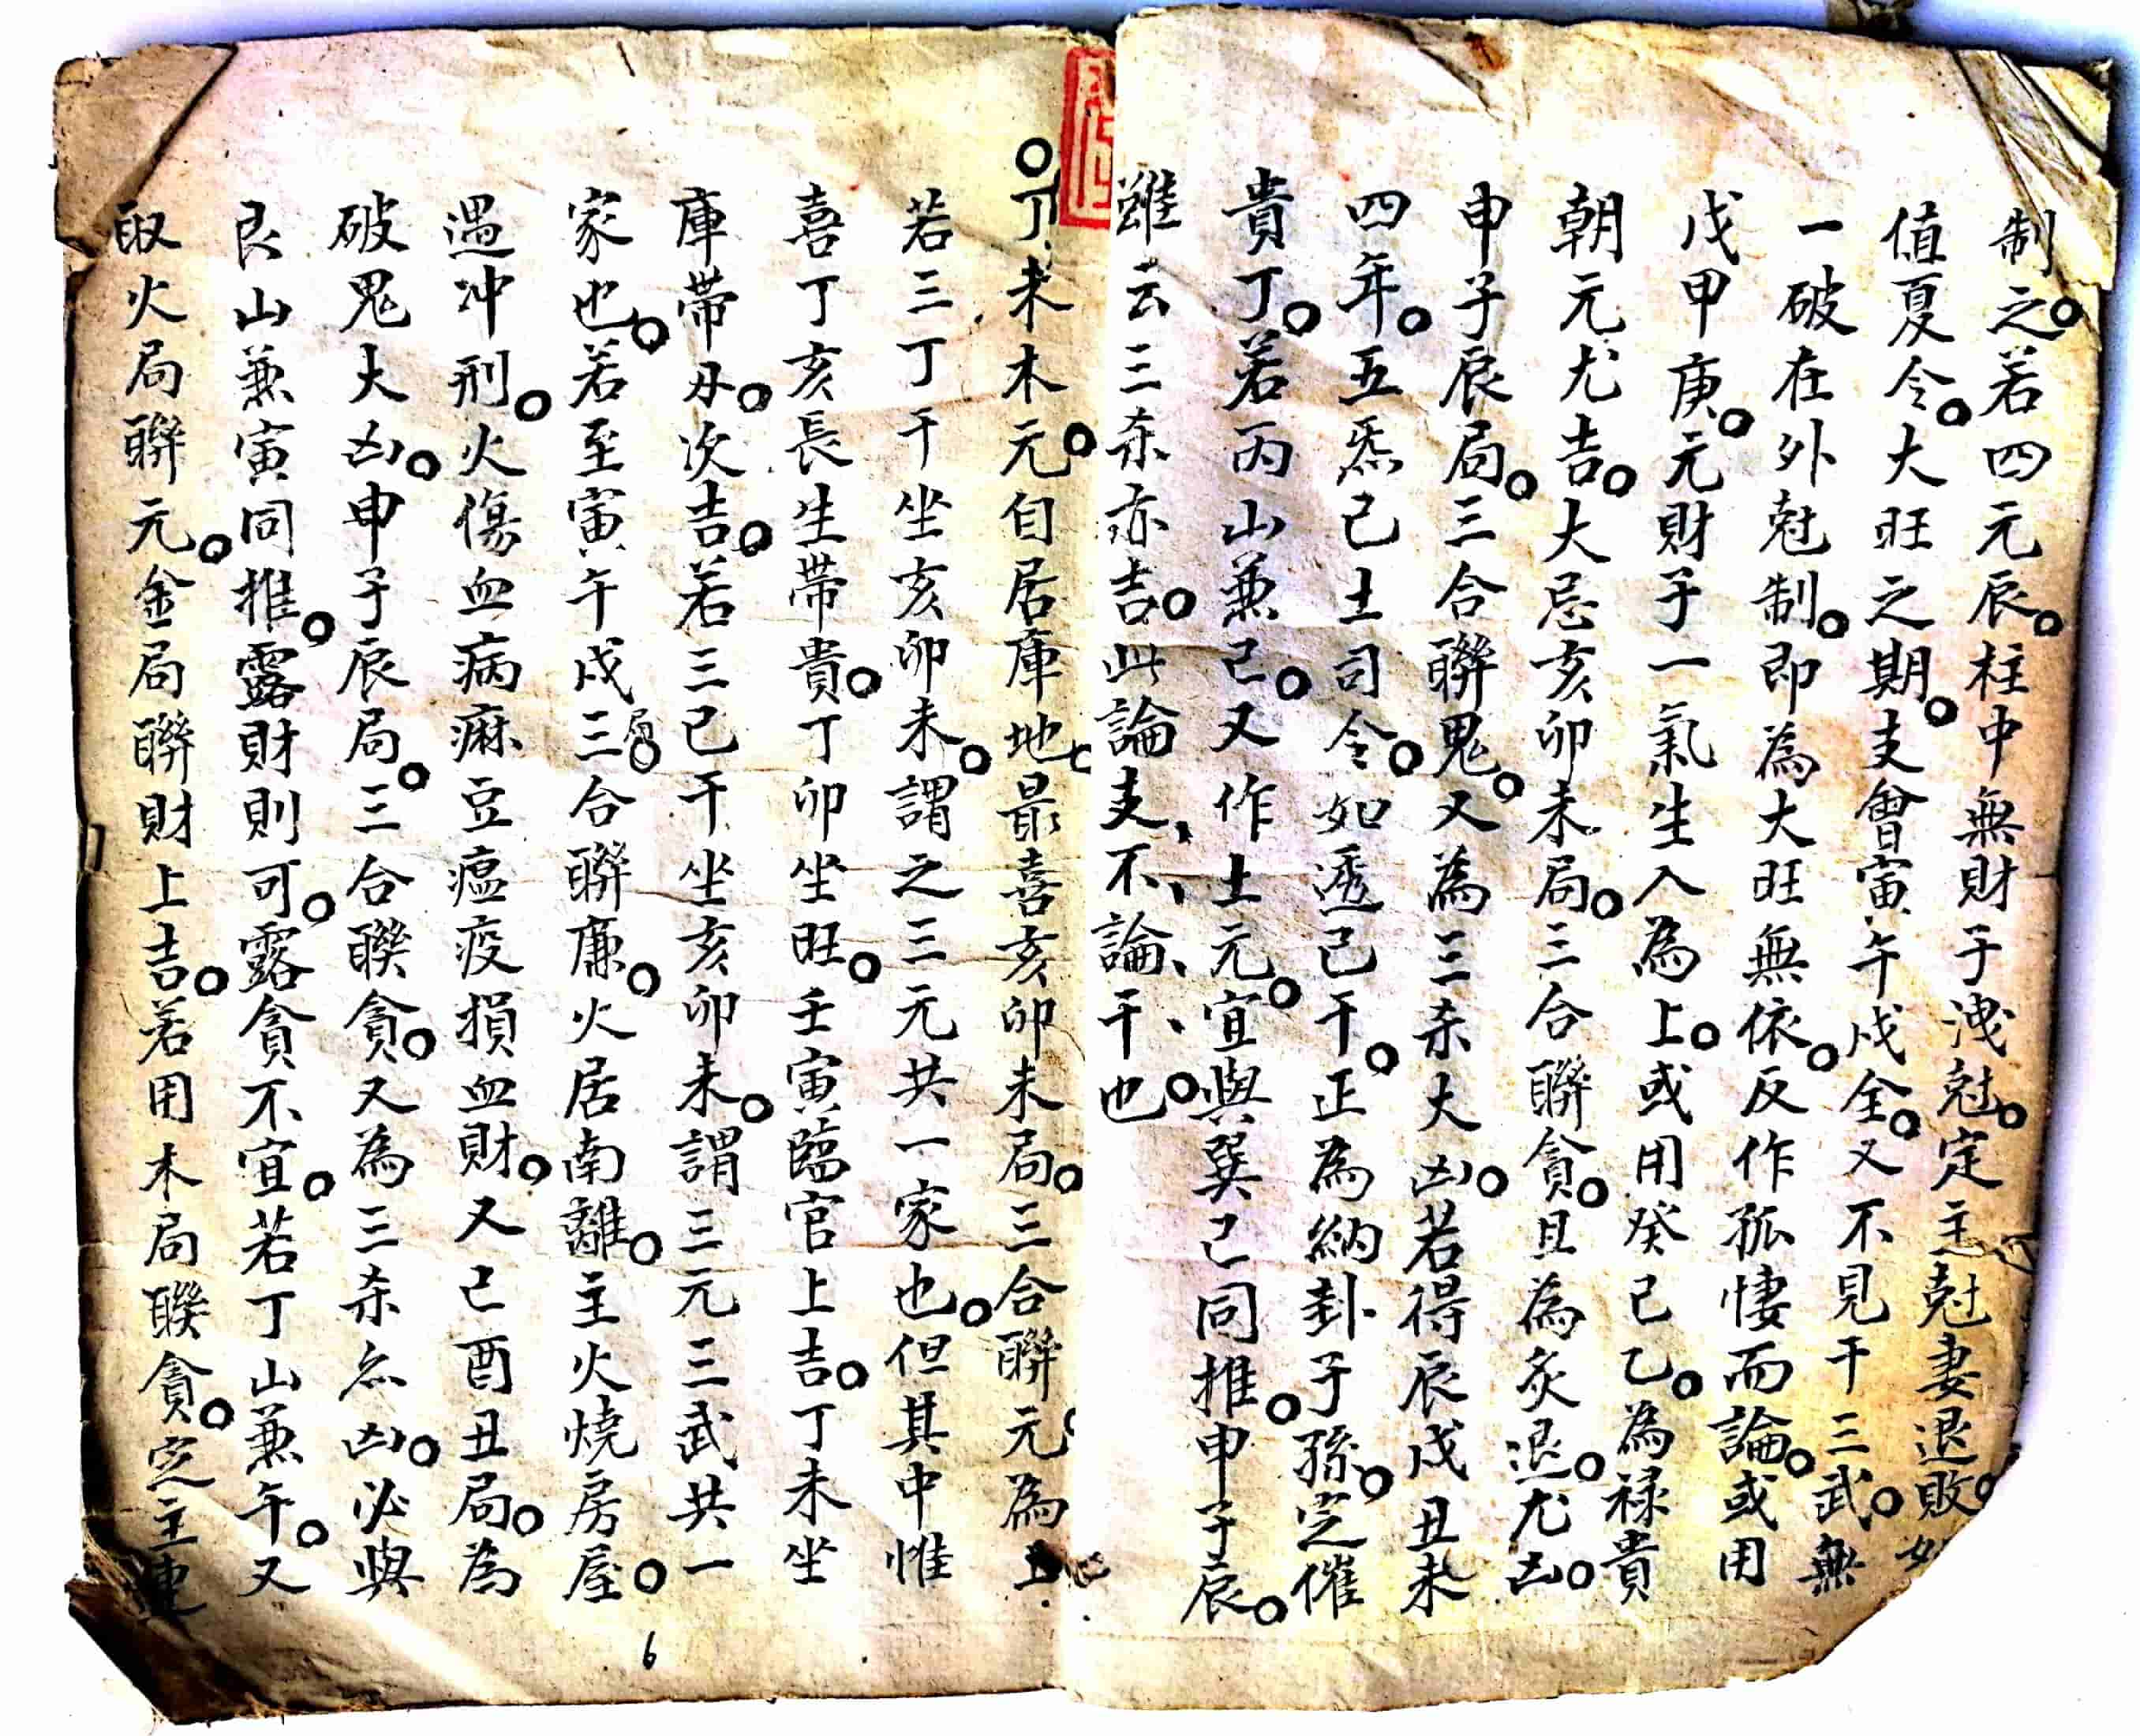 制之。若四元辰。柱中無財子洩尅。定主尅妻退敗。
值夏令。大旺之期。支會寅午戌全。又不見干三武。無
一破在外尅制。即為大旺無依。反作孤悽而論。或用
戊甲庚。元財子一氣生入為上。或用癸己乙。為祿貴
朝元尤吉。大忌亥卯未局。三合聯貪。且為炙退。尤凶。
申子辰局。三合聯鬼。又為三杀大凶。若得辰戌丑未
四年。五炁己土司令。如透己干。正為納卦子孫。定催
貴丁。若丙山兼己。又作土元。宜與巽己同推。申子辰。
雖云三杀亦吉。此論支、不、論、干、也。
丁未木元。自居庫地。最喜亥卯未局。三合聯元。為上
若三丁干坐亥卯未。謂之三元共一家也。但其中惟
喜丁亥長生帶貴。丁卯坐旺。壬寅臨官上吉。丁未坐
庫帶刃。次吉。若三已干坐亥卯未。謂三元三武共一
家也。若至寅午戌三局。合聯廉。火居南離。主火燒房屋。
遇冲刑。火傷血病痳豆瘟疫損血財。又己酉丑局。為
破鬼大凶。申子辰局。三合聯貪。又為三杀亦凶。必與
艮山兼寅同推。露財則可。露貪不宜。若丁山兼午。又
取火局聯元。金局聯財上吉。若用木局聯貪。定主連
6